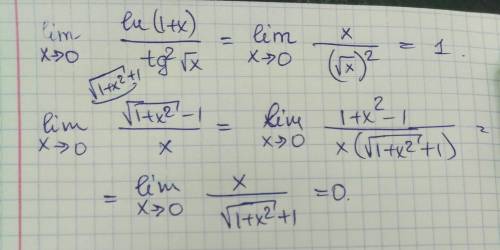 lim x→0 ln(1+x) / tg²√x = lim x→0 x / (√x)² = 1.
√(1+x²)+1
lim x→0 (√(1+x²)-1) / x = lim x→0 (1+x²-1) / (x(√(1+x²)+1)) =
= lim x→0 x / (√(1+x²)+1) = 0.